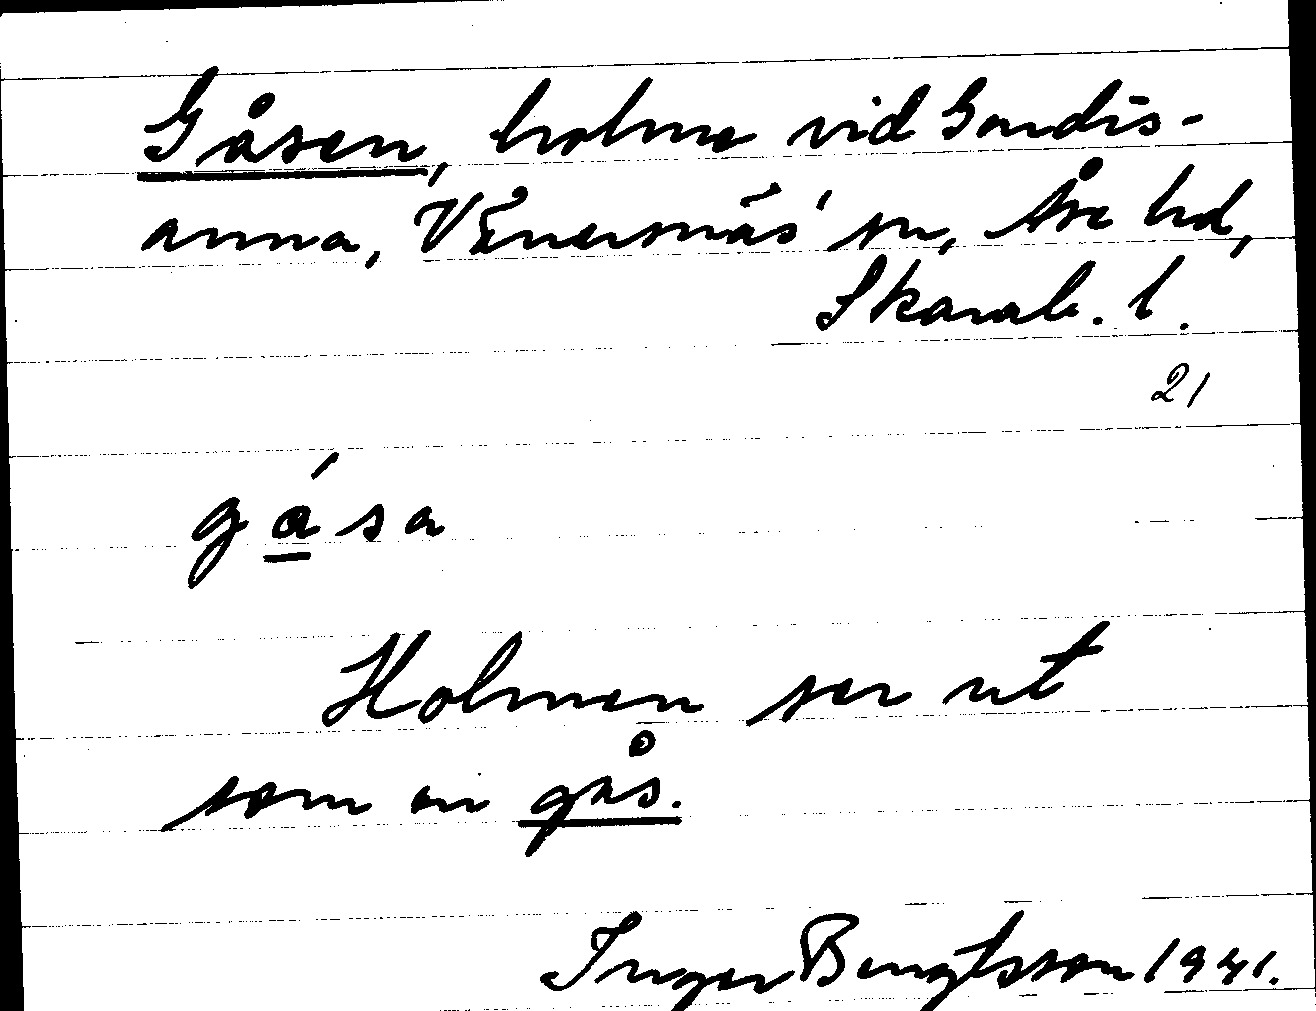 Gåsen, holme vid Gondis-
anna, Vänersnäs' sn, Åse hd,
Skarab. l.
21
gása
Holmen ser ut
som en gås.
Inger Bengtsson 1941.